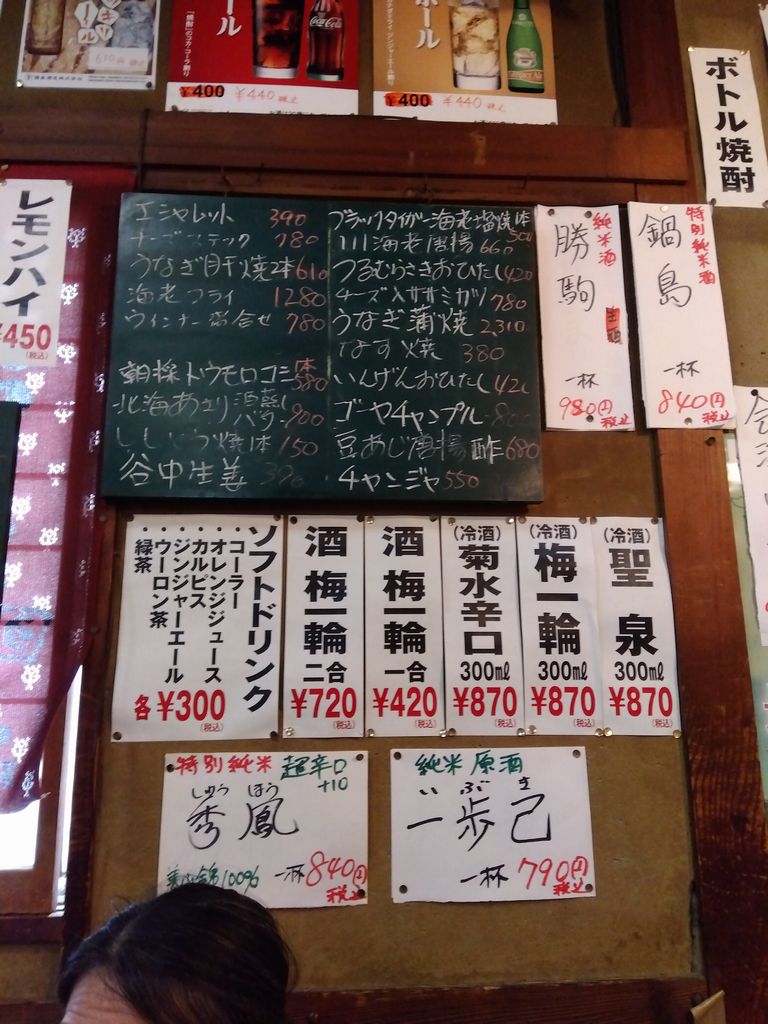 ール
「焼酎」のコカ・コーラ割り
Coca-Cola
¥400 ¥440 税込
ール
¥400 ¥440 税込
ボトル焼酎
レモンハイ
¥450
(税込)
エシャレット 390
780
うなぎ肝焼2本610
海老フライ 1280
ウィンナー盛合せ 780
朝採トウモロコシ1本580
北海あさり酒蒸し バタ 800
ししゃも焼1本150
谷中生姜 390
ブラックタイガー海老塩焼1本500
川海老唐揚660
つるむらさきおひたし420
チーズ入ササミカツ780
うなぎ蒲焼 2,310
なす焼 380
いんげんおひたし420
ゴーヤチャンプル 800
豆あじ唐揚酢680
チャンジャ550
純米酒
勝駒
一杯
980円
税込
特別純米酒
鍋島
一杯
840円
税込
ソフトドリンク
・コーラー
・オレンジジュース
・カルピス
・ジンジャーエール
・ウーロン茶
・緑茶
各¥300
(税込)
酒 梅一輪
二合
¥720
(税込)
酒 梅一輪
一合
¥420
(税込)
(冷酒)
菊水辛口
300㎖
¥870
(税込)
(冷酒)
梅一輪
300㎖
¥870
(税込)
(冷酒)
聖泉
300㎖
¥870
(税込)
特別純米 超辛口
+10
しゅう ほう
秀鳳
美山錦100%
一杯840円
税込
純米原酒
いぶき
一歩己
一杯790円
税込